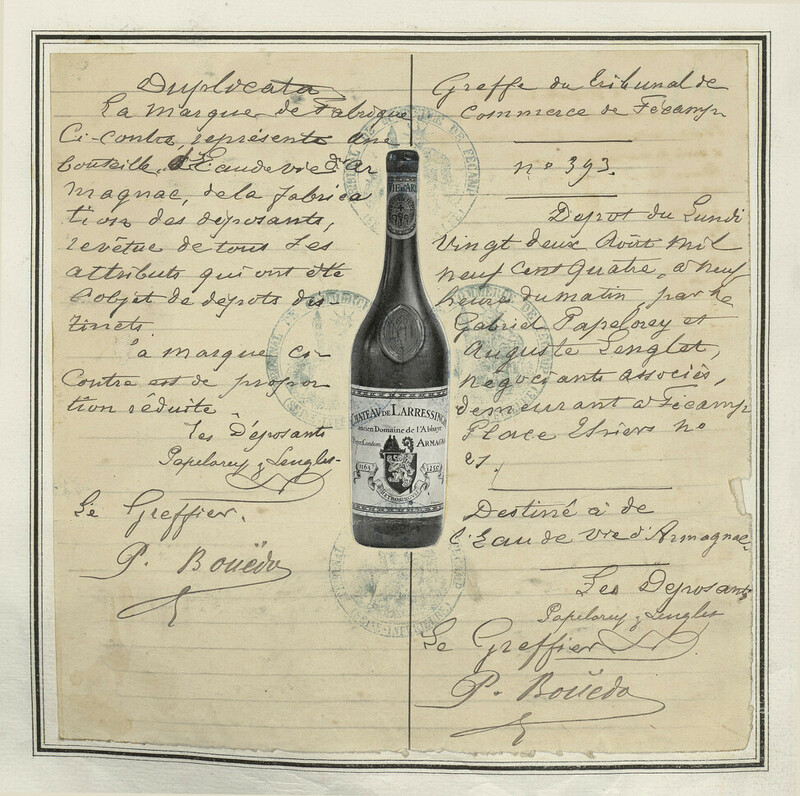 Duplicata
La marque de Fabrique
Ci-contre, représente une
bouteille, d'Eau de vie d'Ar
magnac, de la fabrica
tion des déposants,
revêtue de tous les
attributs qui ont été
l'objet de dépots dis-
tincts.
la marque ci-
contre est de propor
tion réduite
Les Déposants
Papelorey & Lenglet
Le Greffier.
P. Bouëdo
Greffe du Tribunal de
Commerce de Fécamp
n° 393.
Depot du Lundi
Vingt deux Août mil
neuf cent quatre, à neuf
heure du matin, par Mr
Gabriel Papelorey et
Auguste Lenglet,
négociants associés,
demeurant à Fécamp
Place Thiers no
21.
Destiné à de
l'Eau de vie d'Armagnac.
Les Déposants
Papelorey & Lenglet
Le Greffier
P. Bouëdo
CHATEAU DE LARRESSINGLE
Ancien Domaine de l'Abbaye
ARMAGNAC
TRIBUNAL DE COMMERCE DE FECAMP
(SEINE-INFERIEURE)